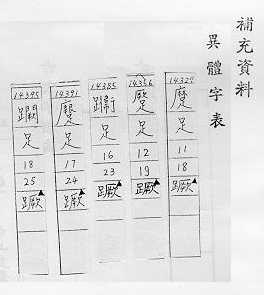 補充資料
異體字表
足
11
18
蹶▲
足
12
19
蹶▲
14385
足
16
23
蹶▲
14391
足
17
24
蹶▲
14395
足
18
25
蹶▲